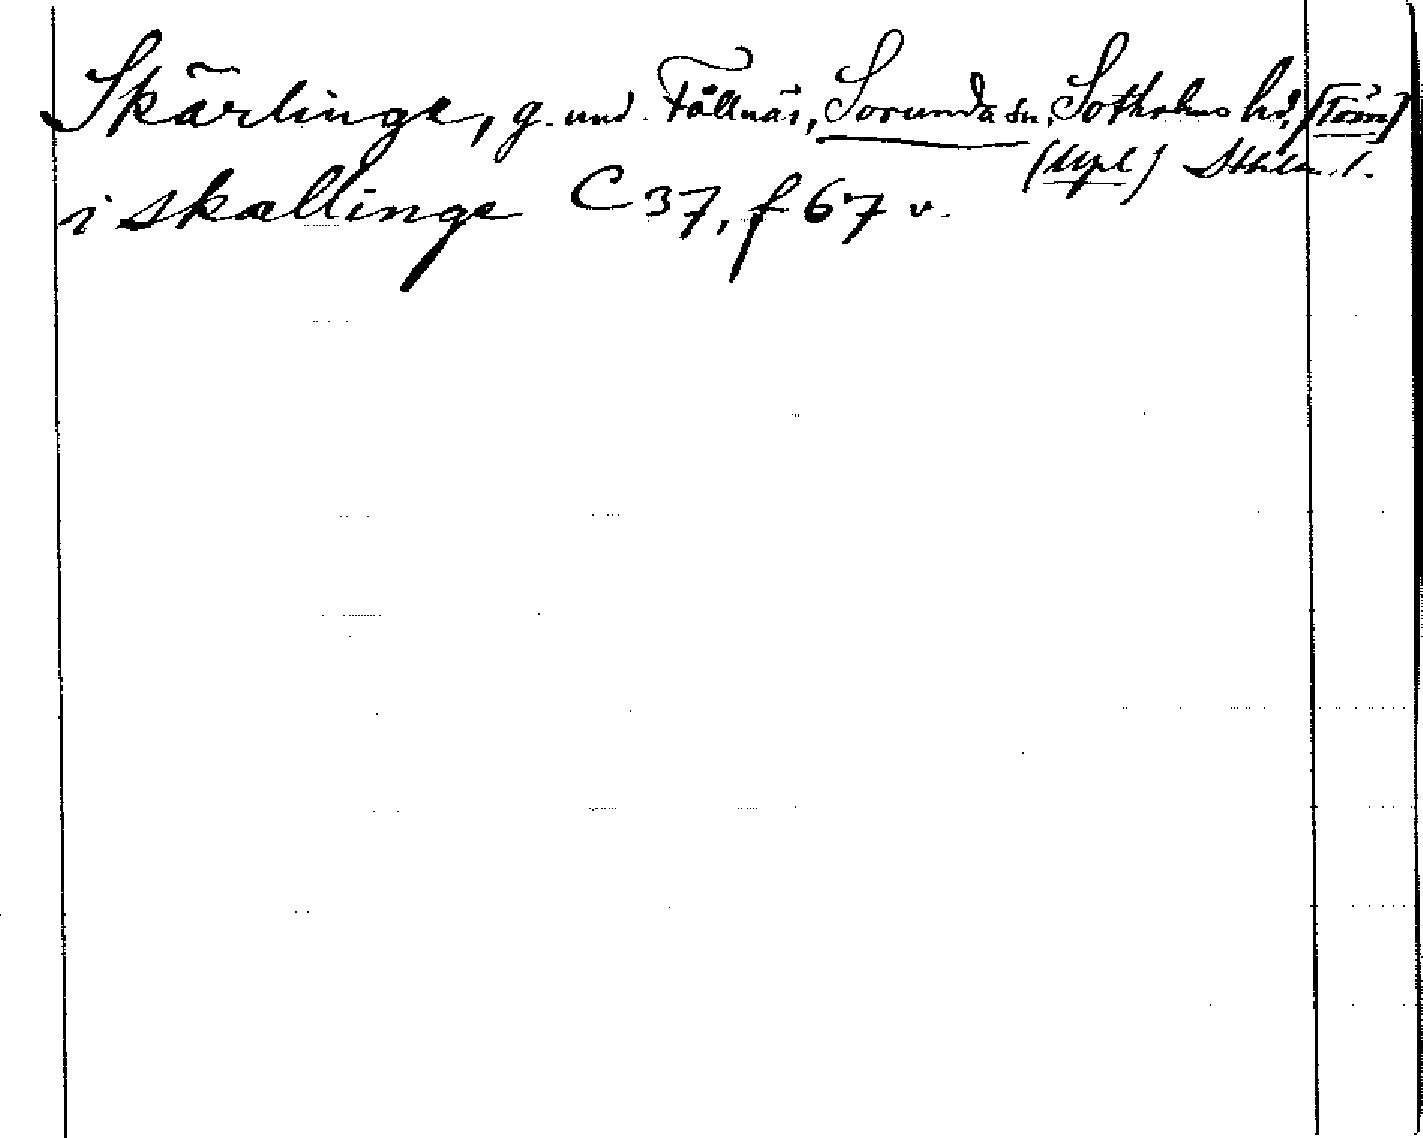 Skärlinge, g. und. Fållnäs, Sorunda sn, Sotholms hd, [Törn]
(Upl) Sthlm. l.
i skallinge C 37, f 67 v.